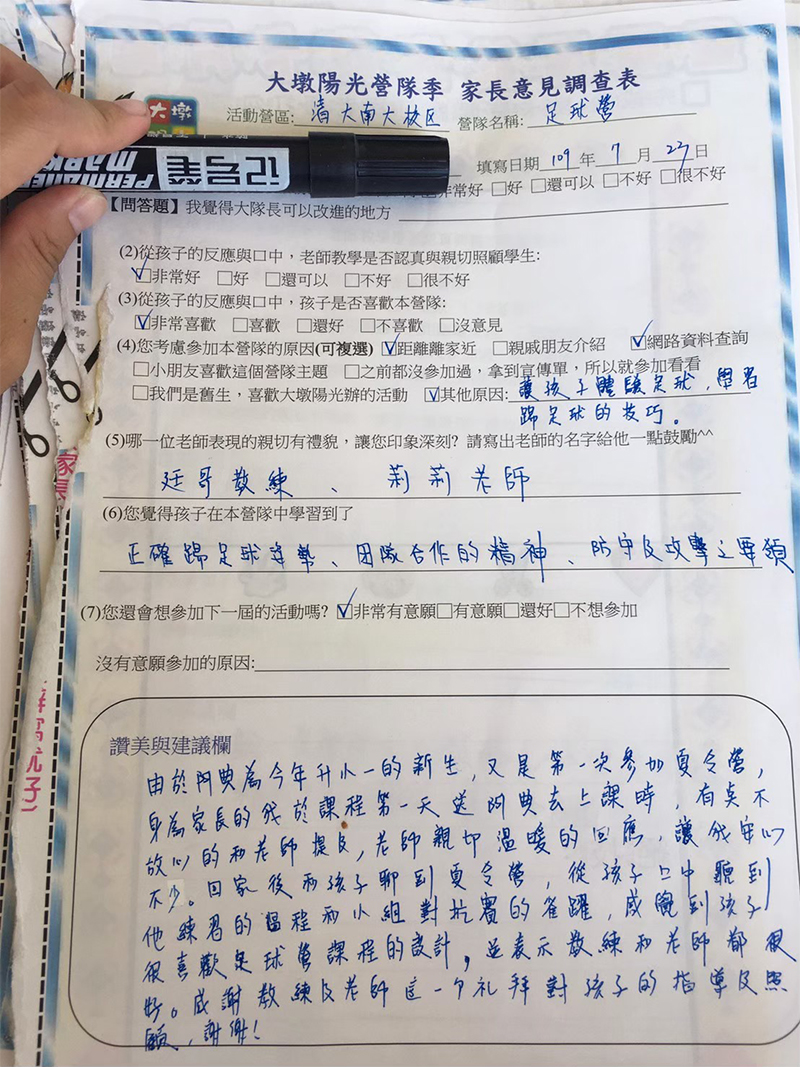 大墩陽光營隊季 家長意見調查表
大墩
活動營區: 清大南大校區 營隊名稱: 足球營
填寫日期 109 年 7 月 27 日
PERMANENT MARK 记号笔
非常好 □好 □還可以 □不好 □很不好
【問答題】我覺得大隊長可以改進的地方
(2)從孩子的反應與口中，老師教學是否認真與親切照顧學生:
☑非常好 □好 □還可以 □不好 □很不好
(3)從孩子的反應與口中，孩子是否喜歡本營隊:
☑非常喜歡 □喜歡 □還好 □不喜歡 □沒意見
(4)您考慮參加本營隊的原因(可複選) ☑距離離家近 □親戚朋友介紹 ☑網路資料查詢
□小朋友喜歡這個營隊主題 □之前都沒參加過，拿到宣傳單，所以就參加看看
□我們是舊生，喜歡大墩陽光辦的活動 ☑其他原因: 讓孩子體驗足球，學習
踢足球的技巧。
(5)哪一位老師表現的親切有禮貌，讓您印象深刻? 請寫出老師的名字給他一點鼓勵^^
廷哥教練、莉莉老師
(6)您覺得孩子在本營隊中學習到了
正確踢足球姿勢、團隊合作的精神、防守及攻擊之要領
(7)您還會想參加下一屆的活動嗎? ☑非常有意願□有意願□還好□不想參加
沒有意願參加的原因:
讚美與建議欄
由於阿典為今年升小一的新生，又是第一次參加夏令營，
身為家長的我於課程第一天送阿典去上課時，有點不
放心的和老師提及，老師親切溫暖的回應，讓我安心
不少。回家後和孩子聊到夏令營，從孩子口中聽到
他練習的過程和小組對抗賽的雀躍，感覺到孩子
很喜歡足球營課程的設計，並表示教練和老師都很
好。感謝教練及老師這一個礼拜對孩子的指導及照
顧，謝謝！
家長